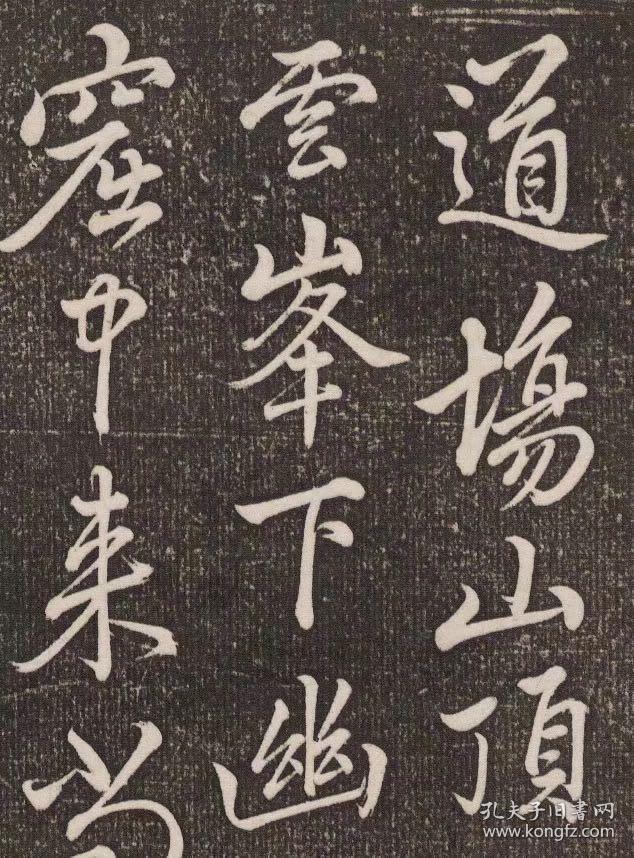 道場山頂
雲峯下幽
窟中来
孔夫子旧書网
www.kongfz.com